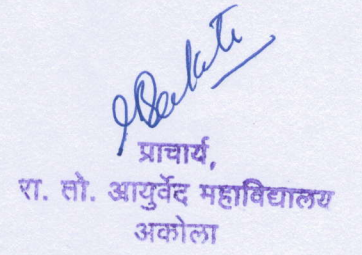 प्राचार्य,
रा. तो. आयुर्वेद महाविद्यालय
अकोला